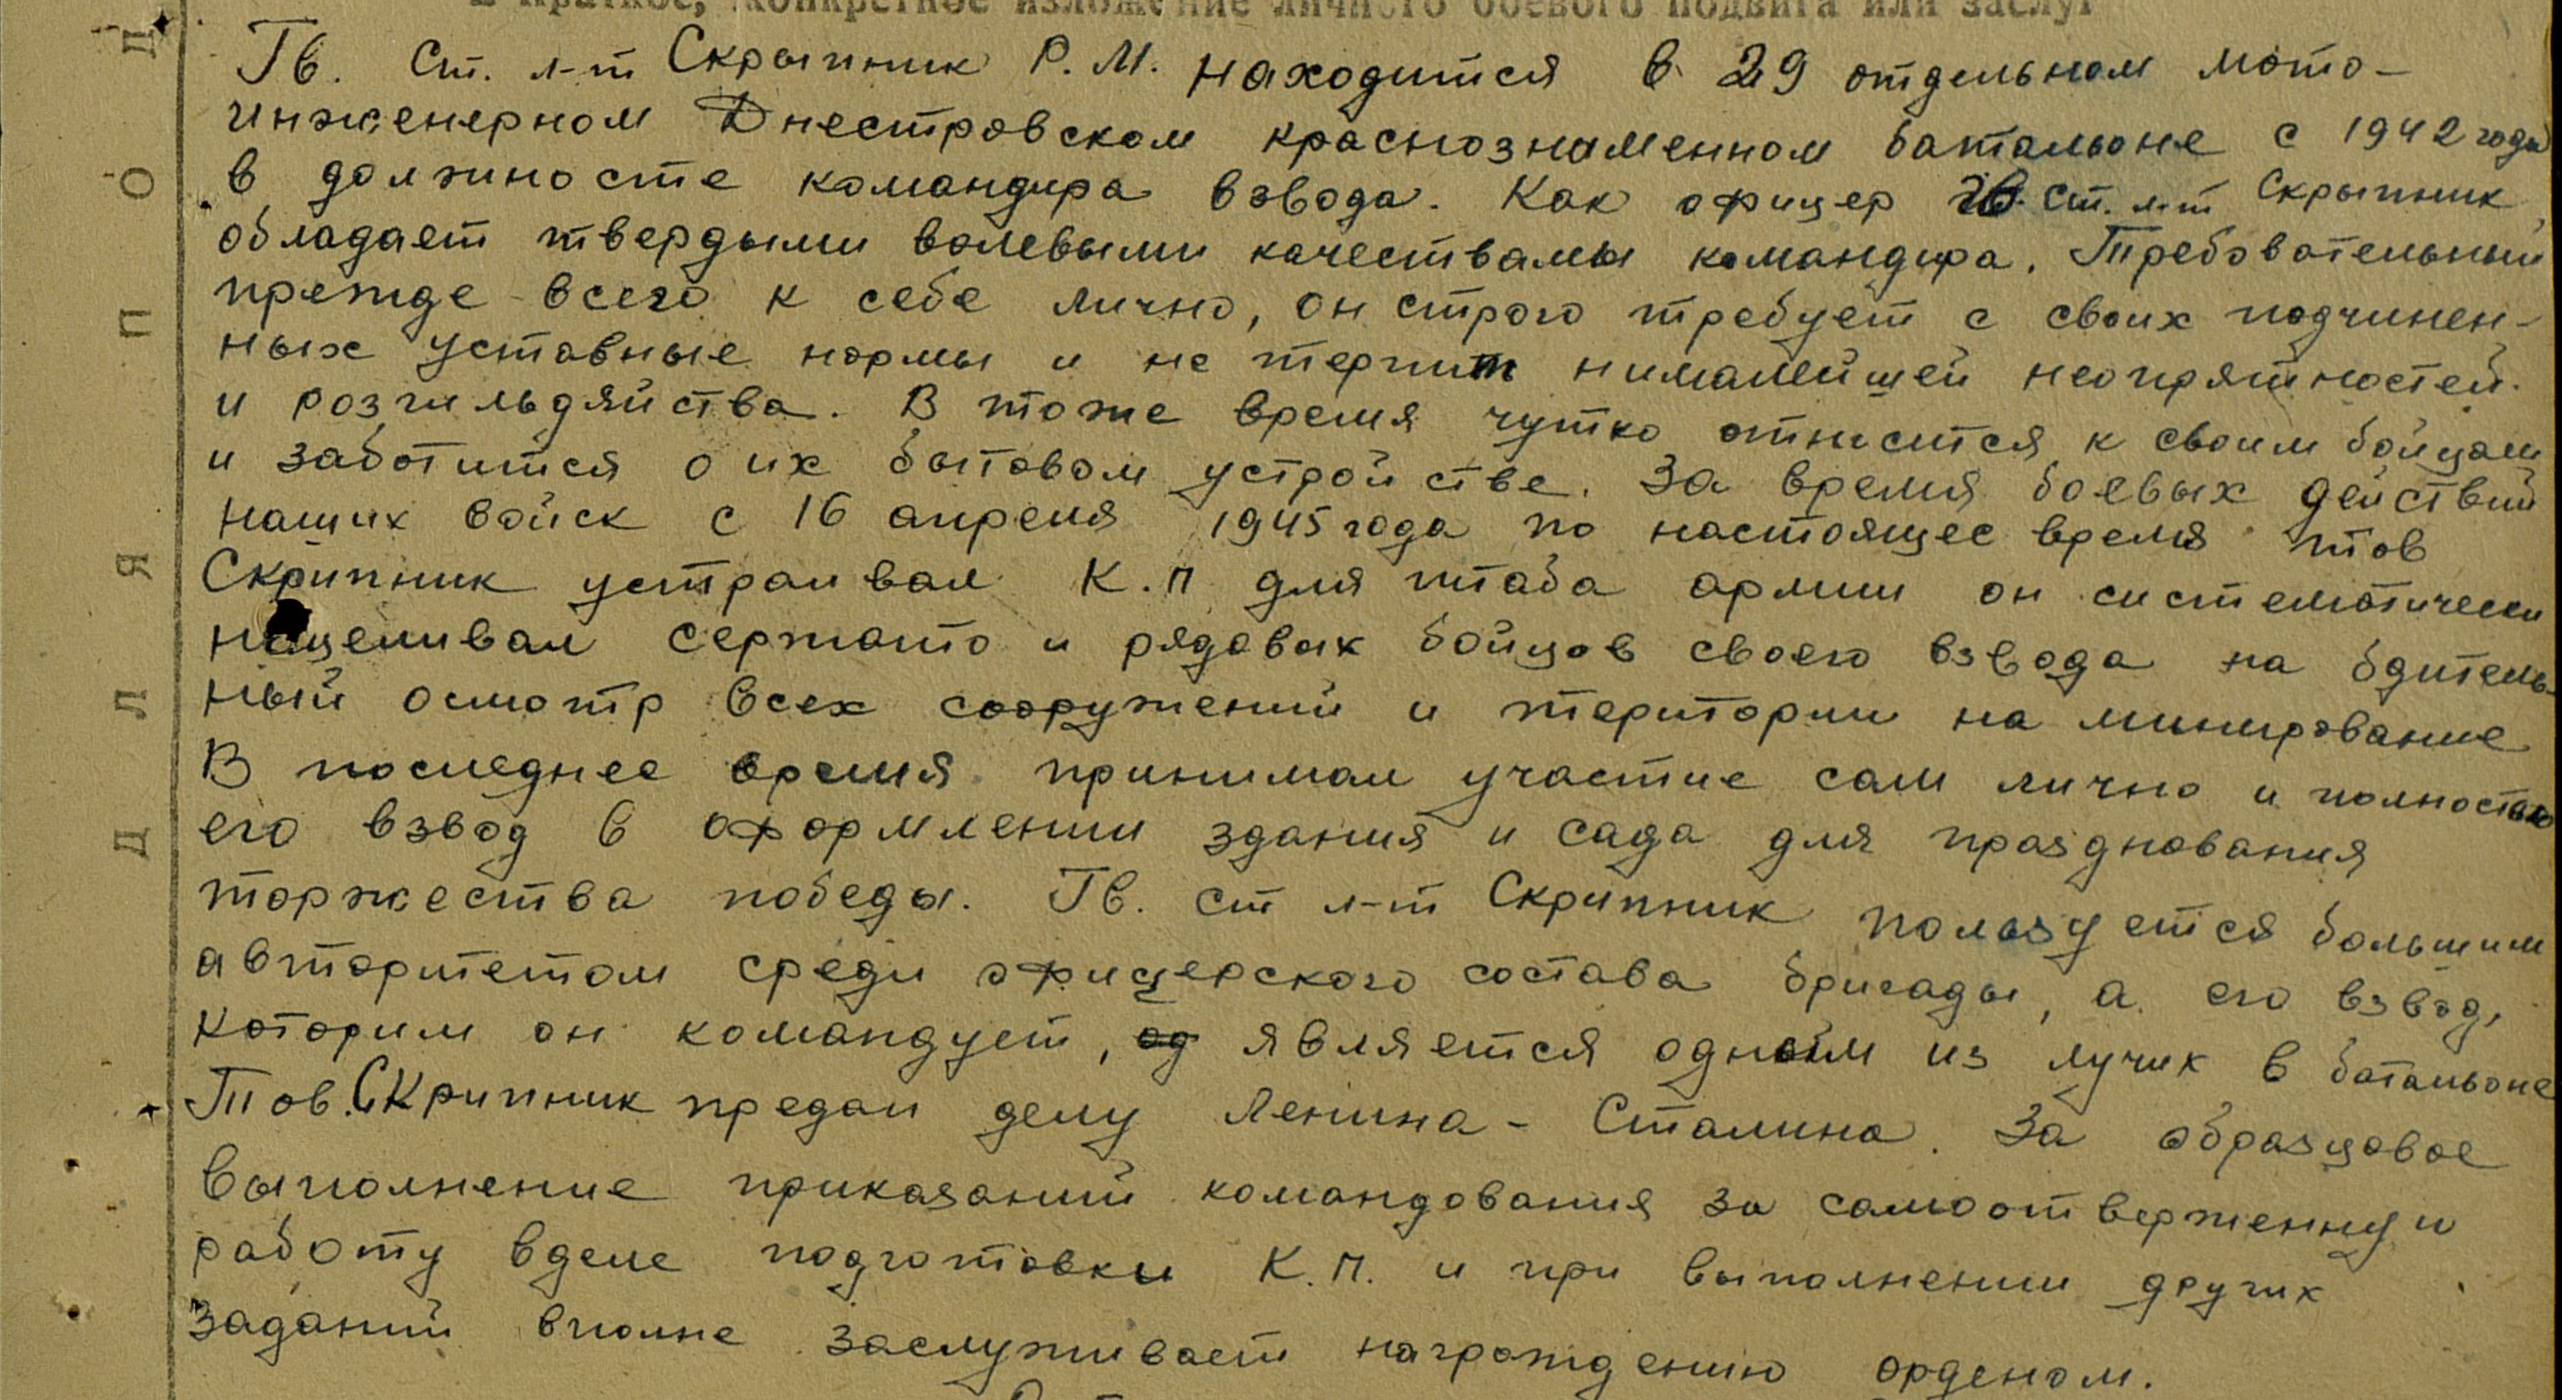 краткое, конкретное изложение личного боевого подвига или заслуг
Гв. Ст. л-т Скрыпник Р. М. находится в 29 отдельном мото-
инженерном Днестровском краснознаменном батальоне с 1942 года
в должносте командира взвода. Как офицер гв. ст. л-т Скрыпник
обладает твердыми волевыми качествамы командира. Требовательный
прежде всего к себе лично, он строго требует с своих подчинен-
ных уставные нормы и не терпит нималейшей неопрятностей
и розгильдяйства. В тоже время чутко относится к своим бойцам
и заботится о их бытовом устройстве. За время боевых действий
наших войск с 16 апреля 1945 года по настоящее время тов
Скрипник устраивал К.П для штаба армии он систематически
нацеливал сержанто и рядовых бойцов своего взвода на бдитель-
ный осмотр всех сооружений и територии на минирование
В последнее время принимал участие сам лично и полностью
его взвод в оформлении здания и сада для празднования
торжества победы. Гв. ст л-т Скрипник пользуется большим
авторитетом среди офицерского состава бригады, а его взвод,
которим он командует, является одним из лучих в батальоне
Тов. Скрипник предан делу Ленина - Сталина. За образцовое
выполнение приказаний командования за самоотверженную
работу вделе подготовки К.П. и при выполнении других
заданий вполне заслуживает награждению орденом.
ДЛЯ ПОД